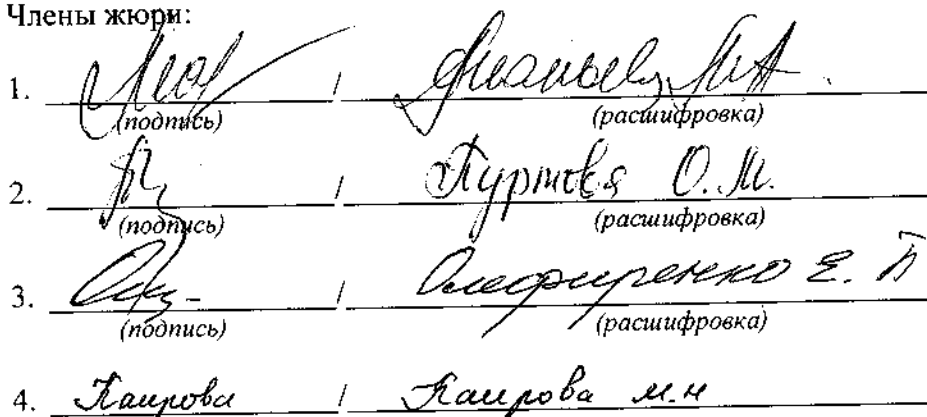 Члены жюри:
1. / Ананьева М.А.
(подпись) (расшифровка)
2. / Пуртова О.М.
(подпись) (расшифровка)
3. / Олефиренко Е. П
(подпись) (расшифровка)
4. Каирова / Каирова м.н